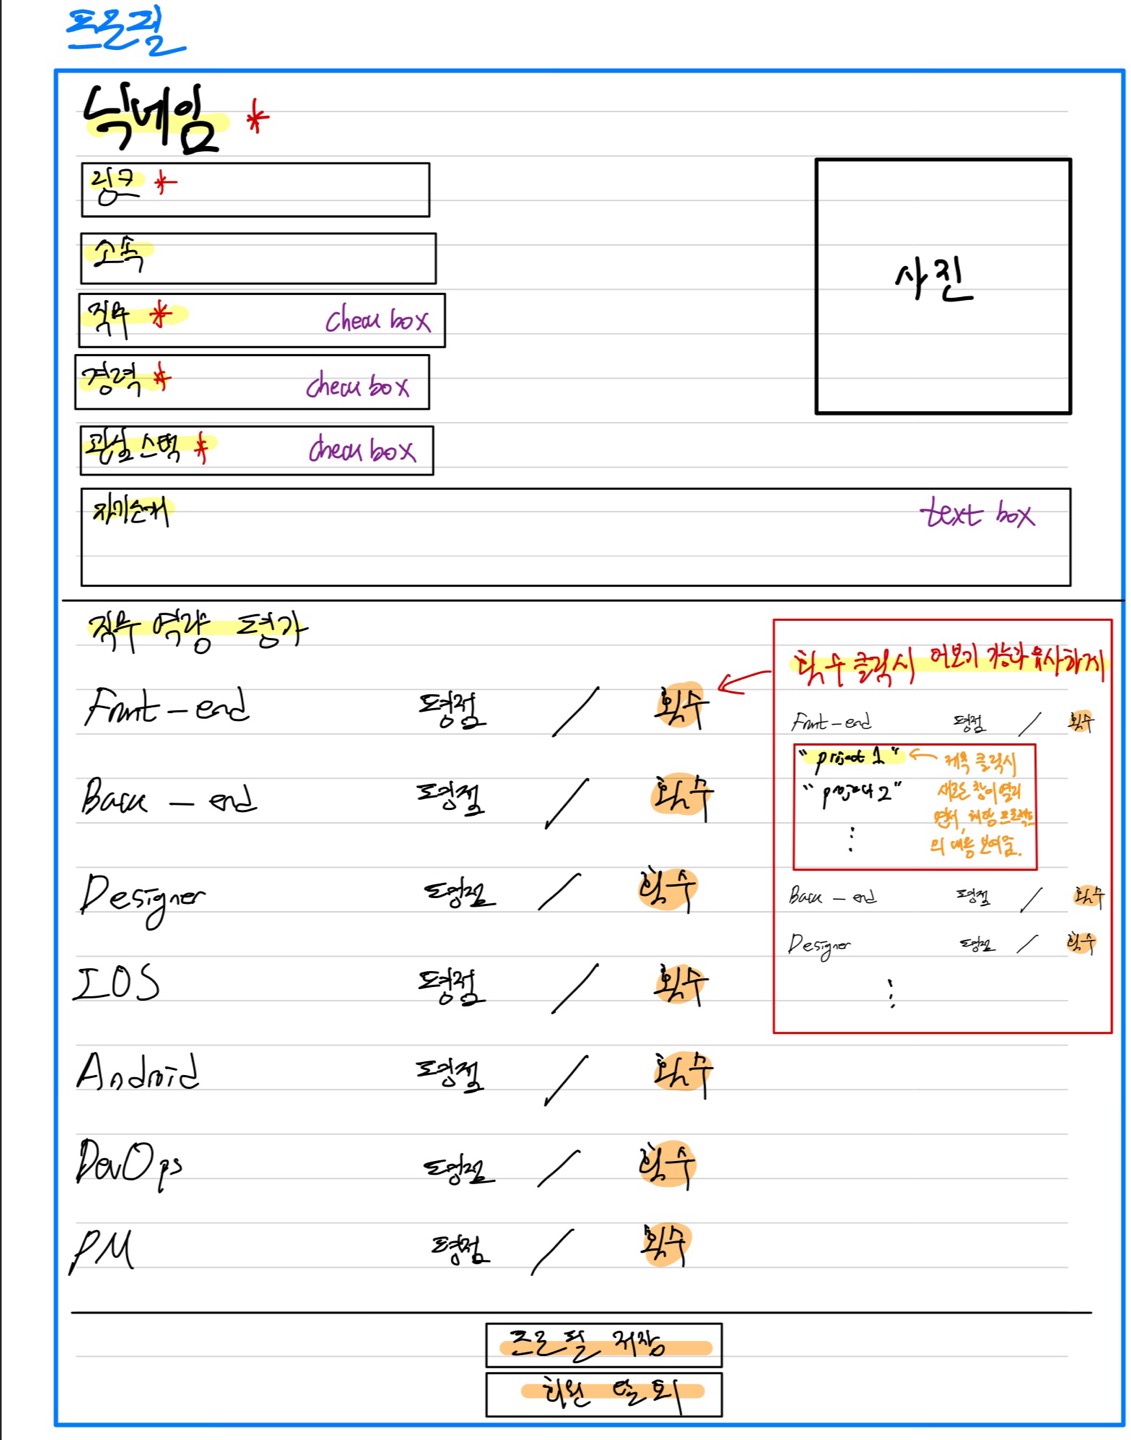 프로필
닉네임 *
링크 *
소속
직무 * check box
경력 * check box
관심 스택 * check box
사진
자기소개 text box
직무 역량 평가
Front-end 평점 / 횟수
Back-end 평점 / 횟수
Designer 평점 / 횟수
IOS 평점 / 횟수
Android 평점 / 횟수
DevOps 평점 / 횟수
PM 평점 / 횟수
횟수 클릭시 더보기 기능과 유사하게
Front-end 평점 / 횟수
"project 1" ← 제목 클릭시
"project 2" 새로운 창이 열리
면서, 해당 프로젝트
의 내용 보여줌.
Back-end 평점 / 횟수
Designer 평점 / 횟수
프로필 저장
회원 탈퇴